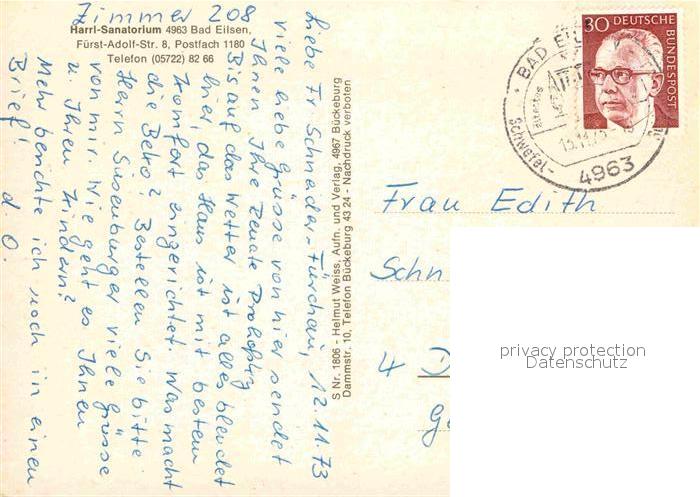 Zimmer 208
Harrl-Sanatorium 4963 Bad Eilsen,
Fürst-Adolf-Str. 8, Postfach 1180
Telefon (05722) 82 66
Liebe Fr Schneider-Fürchau, 12.11.73
viele liebe Grüsse von hier sendet
Ihnen Ihre Renate
Bis auf das Wetter ist alles blendet
hier, das Haus ist mit bestem
Komfort eingerichtet. Was macht
die Beko? Bestellen Sie bitte
Herrn Susenburger viele Grüsse
von mir. Wie geht es Ihnen
u. Ihren Kindern?
Mehr berichte ich noch in einen
Brief! d. O.
S Nr. 1806 - Helmut Weiss, Aufn. und Verlag, 4967 Bückeburg
Dammstr. 10, Telefon Bückeburg 43 24 - Nachdruck verboten
30 DEUTSCHE
BUNDESPOST
BAD
Schwefel-
4963
Frau Edith
Schn
4 D
privacy protection
Datenschutz